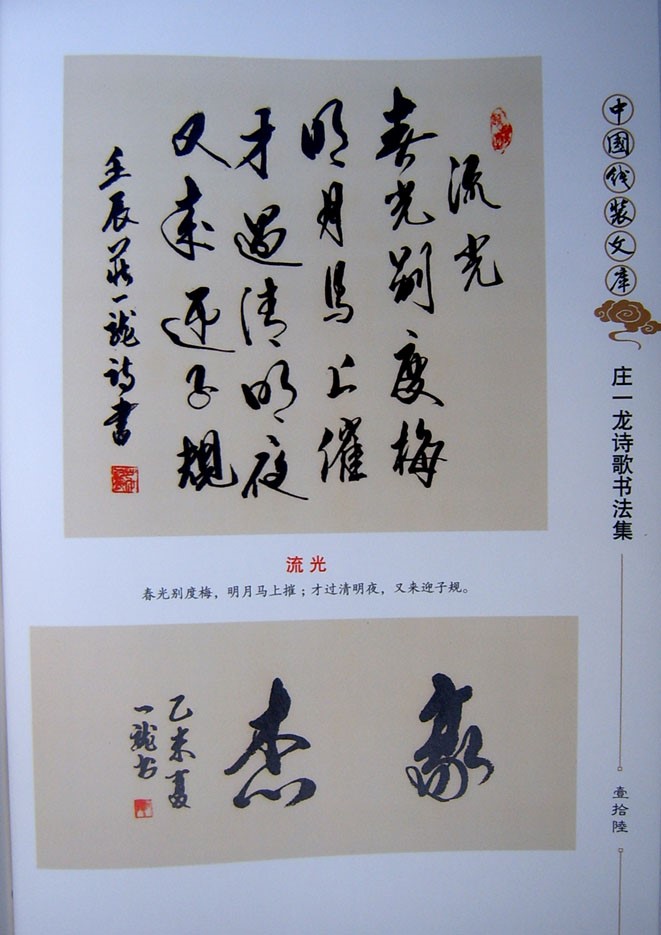 流光
春光别度梅
明月馬上催
才過清明夜
又来迎子規
壬辰莊一龍詩書
流光
春光别度梅，明月马上摧；才过清明夜，又来迎子规。
豪
杰
乙未夏
一龍书
中国线装文库
庄一龙诗歌书法集
壹拾陸